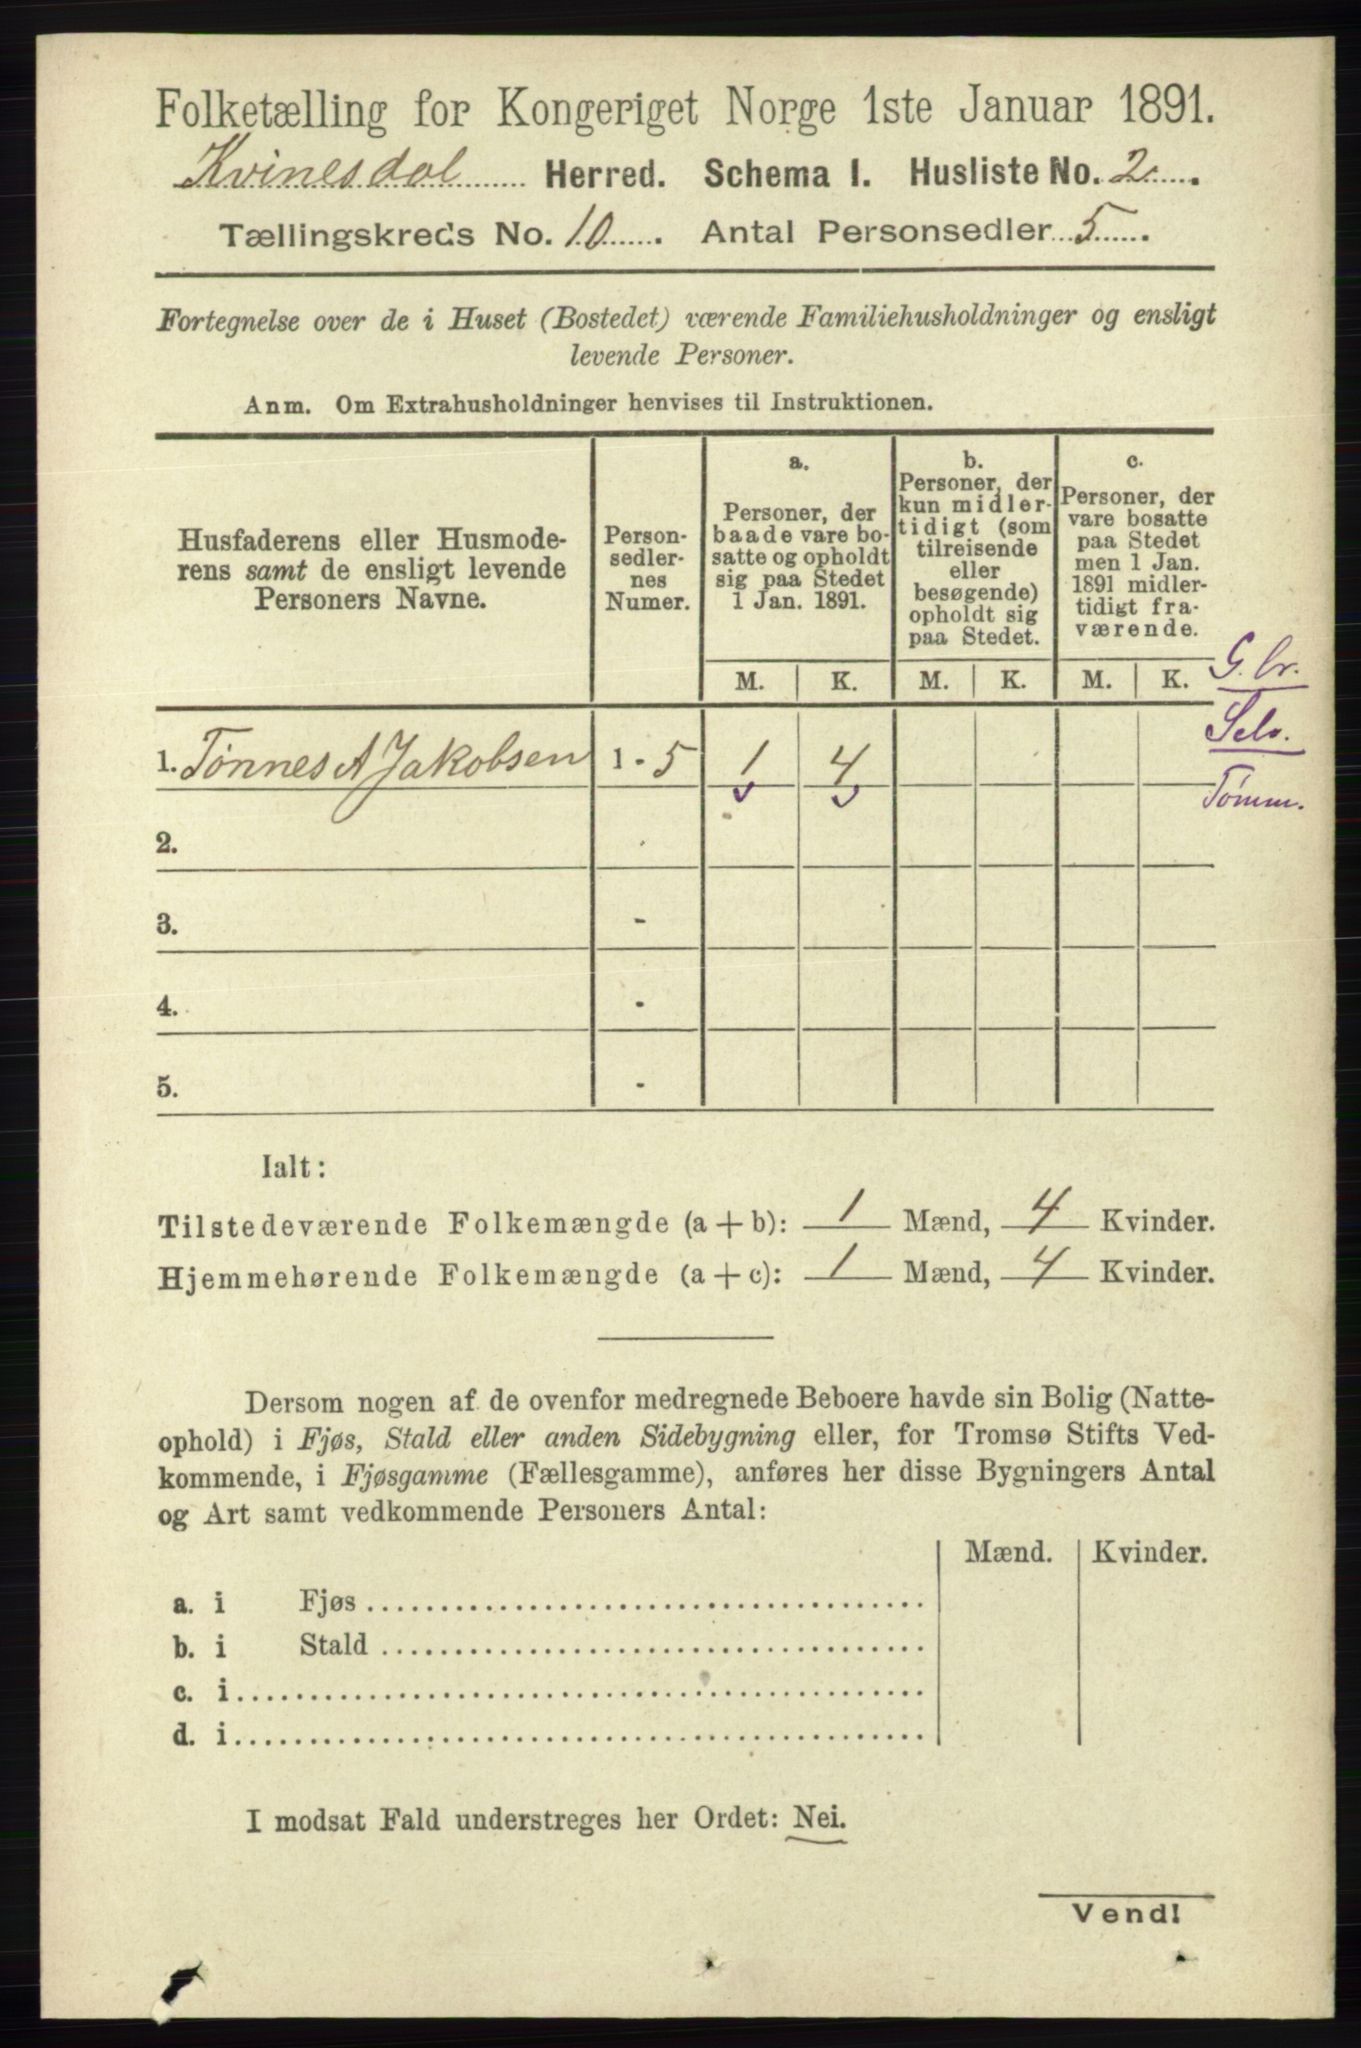 Folketælling for Kongeriget Norge 1ste Januar 1891.
Kvinesdal Herred. Schema I. Husliste No. 2.
Tællingskreds No. 10. Antal Personsedler 5.
Fortegnelse over de i Huset (Bostedet) værende Familiehusholdninger og ensligt
levende Personer.
Anm. Om Extrahusholdninger henvises til Instruktionen.
Husfaderens eller Husmode-
rens samt de ensligt levende
Personers Navne.
Person-
sedler-
nes
Numer.
a.
Personer, der
baade vare bo-
satte og opholdt
sig paa Stedet
1 Jan. 1891.
b.
Personer, der
kun midler-
tidigt (som
tilreisende
eller
besøgende)
opholdt sig
paa Stedet.
c.
Personer, der
vare bosatte
paa Stedet
men 1 Jan.
1891 midler-
tidigt fra-
værende.
M. K. M. K. M. K.
G.br.
Selv.
Tømm.
1. Tønnes A Jakobsen 1 - 5 1 4
2. -
3. -
4. -
5. -
Ialt:
Tilstedeværende Folkemængde (a + b): 1 Mænd, 4 Kvinder.
Hjemmehørende Folkemængde (a + c): 1 Mænd, 4 Kvinder.
Dersom nogen af de ovenfor medregnede Beboere havde sin Bolig (Natte-
ophold) i Fjøs, Stald eller anden Sidebygning eller, for Tromsø Stifts Ved-
kommende, i Fjøsgamme (Fællesgamme), anføres her disse Bygningers Antal
og Art samt vedkommende Personers Antal:
Mænd. Kvinder.
a. i Fjøs
b. i Stald
c. i
d. i
I modsat Fald understreges her Ordet: Nei.
Vend!